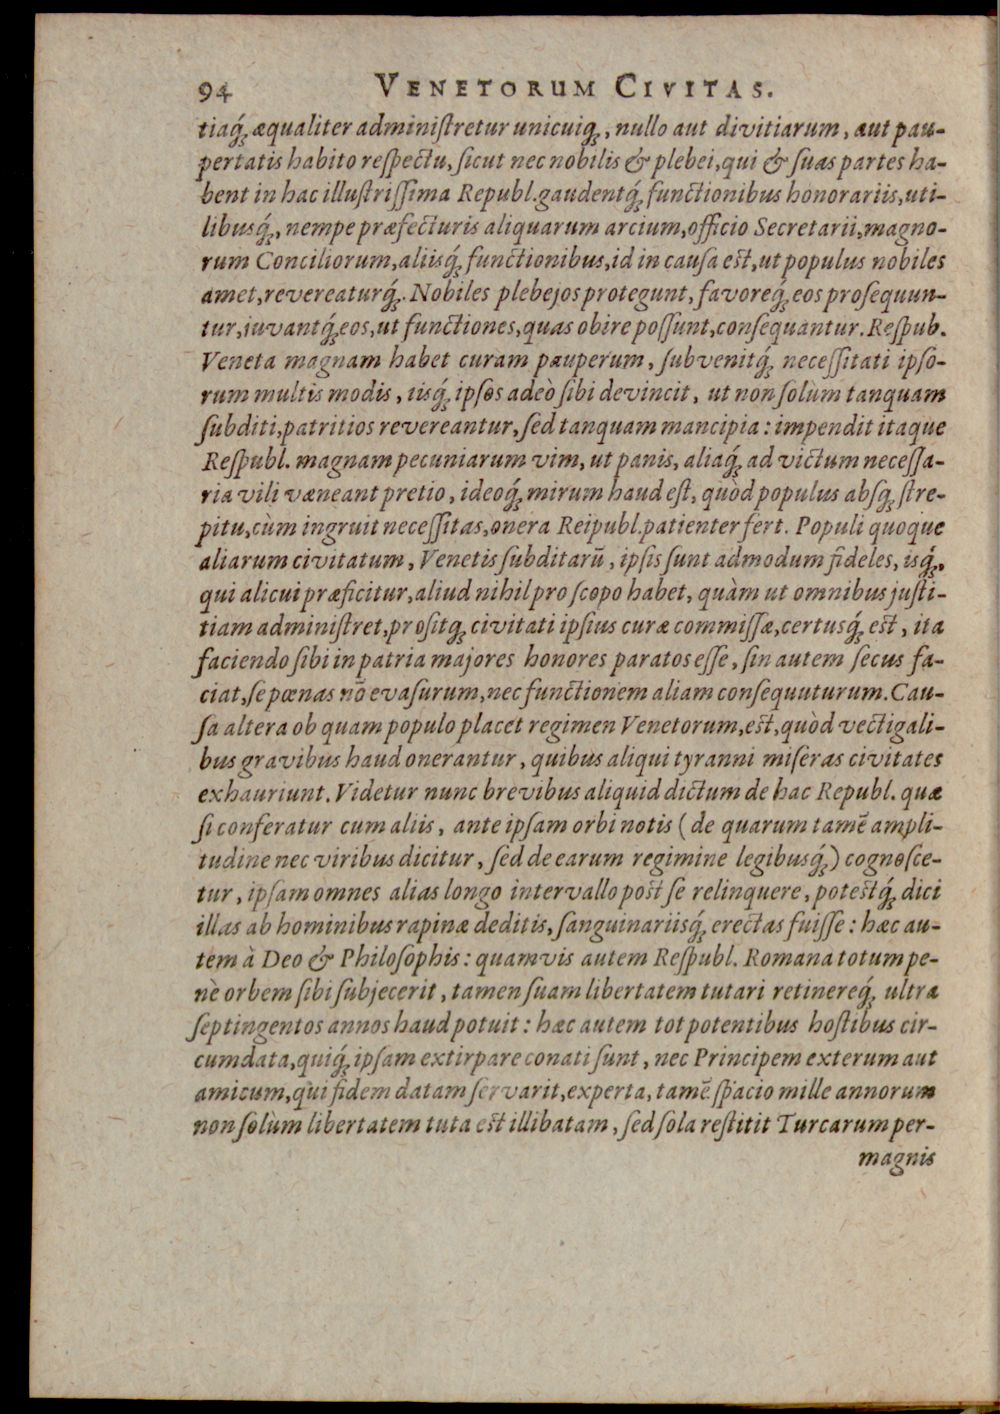 94 VENETORUM CIVITAS.
tiaq́; æqualiter adminiſtretur unicuiq;, nullo aut divitiarum, aut pau-
pertatis habito reſpectu, ſicut nec nobilis & plebei, qui & ſuas partes ha-
bent in hac illuſtriſſima Republ. gaudentq́; functionibus honorariis, uti-
libusq́;, nempe præfecturis aliquarum arcium, officio Secretarii, magno-
rum Conciliorum, aliisq́; functionibus, id in cauſa eſt, ut populus nobiles
amet, revereaturq́;. Nobiles plebejos protegunt, favoreq́; eos proſequun-
tur, iuvantq́; eos, ut functiones, quas obire poſſunt, conſequantur. Reſpub.
Veneta magnam habet curam pauperum, ſubvenitq́; neceſſitati ipſo-
rum multis modis, iisq́; ipſos adeò ſibi devincit, ut non ſolùm tanquam
ſubditi, patritios revereantur, ſed tanquam mancipia: impendit itaque
Reſpubl. magnam pecuniarum vim, ut panis, aliaq́; ad victum neceſſa-
ria vili væneant pretio, ideoq́; mirum haud eſt, quòd populus absq; ſtre-
pitu, cùm ingruit neceſſitas, onera Reipubl. patienter fert. Populi quoque
aliarum civitatum, Venetis ſubditarũ, ipſis ſunt admodum fideles, isq́;,
qui alicui præficitur, aliud nihil pro ſcopo habet, quàm ut omnibus juſti-
tiam adminiſtret, proſitq; civitati ipſius curæ commiſſæ, certusq́; eſt, ita
faciendo ſibi in patria majores honores paratos eſſe, ſin autem ſecus fa-
ciat, ſe pœnas nõ evaſurum, nec functionem aliam conſequuturum. Cau-
ſa altera ob quam populo placet regimen Venetorum, eſt, quòd vectigali-
bus gravibus haud onerantur, quibus aliqui tyranni miſeras civitates
exhauriunt. Videtur nunc brevibus aliquid dictum de hac Republ. quæ
ſi conferatur cum aliis, ante ipſam orbi notis (de quarum tamẽ ampli-
tudine nec viribus dicitur, ſed de earum regimine legibusq́;) cognoſce-
tur, ipſam omnes alias longo intervallo poſt ſe relinquere, poteſtq́; dici
illas ab hominibus rapinæ deditis, ſanguinariisq́; erectas fuiſſe: hæc au-
tem à Deo & Philoſophis: quamvis autem Reſpubl. Romana totum pe-
nè orbem ſibi ſubjecerit, tamen ſuam libertatem tutari retinereq́; ultra
ſeptingentos annos haud potuit: hæc autem tot potentibus hoſtibus cir-
cumdata, quiq́; ipſam extirpare conati ſunt, nec Principem exterum aut
amicum, qui fidem datam ſervarit, experta, tamẽ ſpacio mille annorum
non ſolùm libertatem tuta eſt illibatam, ſed ſola reſtitit Turcarum per-
magnis